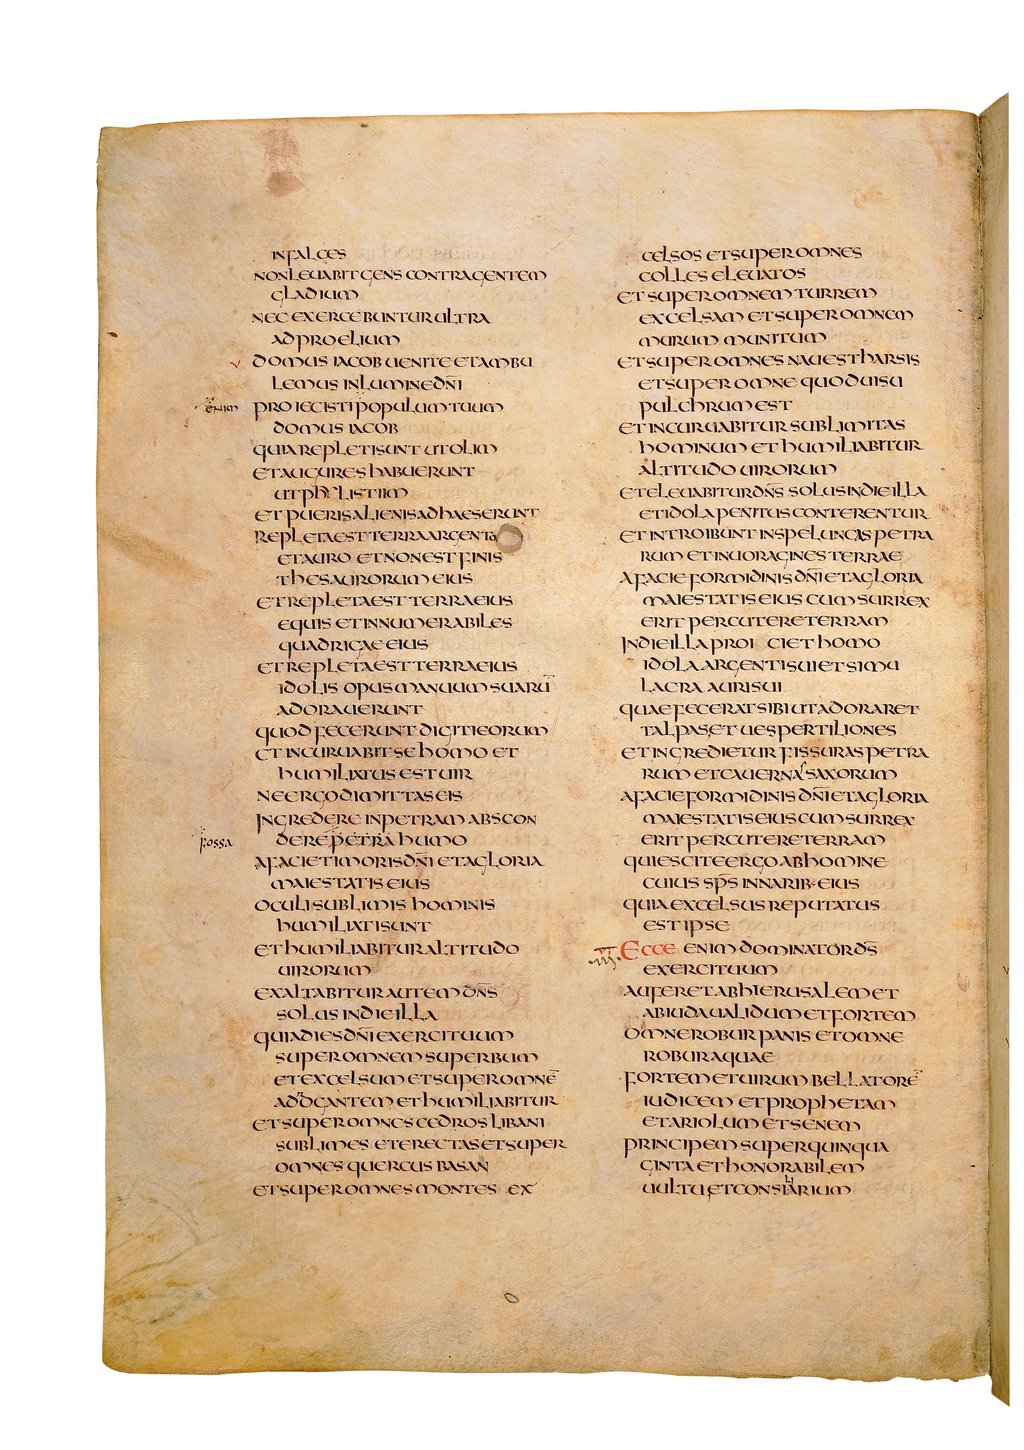 IN FALCES
NON LEUABIT GENS CONTRA GENTEM
GLADIUM
NEC EXERCEBUNTUR ULTRA
AD PROELIUM
DOMUS IACOB UENITE ET AMBU
LEMUS IN LUMINE DN̄I
enim PROIECISTI POPULUM TUUM
DOMUS IACOB
QUIA REPLETI SUNT UT OLIM
ET AUGURES HABUERUNT
UT PHILISTIIM
ET PUERIS ALIENIS ADHAESERUNT
REPLETA EST TERRA ARGENTO
ET AURO ET NON EST FINIS
THESAURORUM EIUS
ET REPLETA EST TERRA EIUS
EQUIS ET INNUMERABILES
QUADRIGAE EIUS
ET REPLETA EST TERRA EIUS
IDOLIS OPUS MANUUM SUARŪ
ADORAUERUNT
QUOD FECERUNT DIGITI EORUM
ET INCURUABIT SE HOMO ET
HUMILIATUS EST UIR
NE ERGO DIMITTAS EIS
INGREDERE IN PETRAM ABSCON
fossa DERE PETRA HUMO
A FACIE TIMORIS DN̄I ET A GLORIA
MAIESTATIS EIUS
OCULI SUBLIMIS HOMINIS
HUMILIATI SUNT
ET HUMILIABITUR ALTITUDO
UIRORUM
EXALTABITUR AUTEM DN̄S
SOLUS IN DIE ILLA
QUIA DIES DN̄I EXERCITUUM
SUPER OMNEM SUPERBUM
ET EXCELSUM ET SUPER OMNĒ
ADOGANTEM ET HUMILIABITUR
ET SUPER OMNES CEDROS LIBANI
SUBLIMES ET ERECTAS ET SUPER
OMNES QUERCUS BASAN
ET SUPER OMNES MONTES EX
CELSOS ET SUPER OMNES
COLLES ELEUATOS
ET SUPER OMNEM TURREM
EXCELSAM ET SUPER OMNEM
MURUM MUNITUM
ET SUPER OMNES NAUES THARSIS
ET SUPER OMNE QUOD UISU
PULCHRUM EST
ET INCURUABITUR SUBLIMITAS
HOMINUM ET HUMILIABITUR
ALTITUDO UIRORUM
ET ELEUABITUR DN̄S SOLUS IN DIE ILLA
ET IDOLA PENITUS CONTERENTUR
ET INTROIBUNT IN SPELUNCAS PETRA
RUM ET IN UORAGINES TERRAE
A FACIE FORMIDINIS DN̄I ET A GLORIA
MAIESTATIS EIUS CUM SURREX
ERIT PERCUTERE TERRAM
IN DIE ILLA PROI CIET HOMO
IDOLA ARGENTI SUI ET SIMU
LACRA AURI SUI
QUAE FECERAT SIBI UT ADORARET
TALPAS ET UESPERTILIONES
ET INGREDIETUR FISSURAS PETRA
RUM ET CAUERNAS SAXORUM
A FACIE FORMIDINIS DN̄I ET A GLORIA
MAIESTATIS EIUS CUM SURREX
ERIT PERCUTERE TERRAM
QUIESCITE ERGO AB HOMINE
CUIUS SP̄S IN NARIB· EIUS
QUIA EXCELSUS REPUTATUS
EST IPSE
ECCE ENIM DOMINATOR DS̄
EXERCITUUM
AUFERET AB HIERUSALEM ET
AB IUDA UALIDUM ET FORTEM
OMNE ROBUR PANIS ET OMNE
ROBUR AQUAE
FORTEM ET UIRUM BELLATORĒ
IUDICEM ET PROPHETAM
ET ARIOLUM ET SENEM
PRINCIPEM SUPER QUINQUA
GINTA ET HONORABILEM
UULTU ET CONSILIARIUM